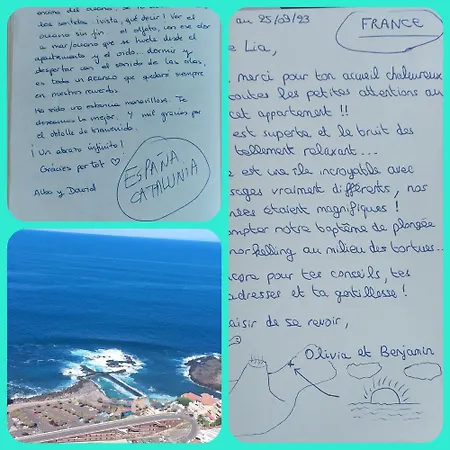 los sentidos. ¡vista, qué decir! Ver el
océano sin fin. el olfato, con ese olor
a mar/océano que se huele desde el
apartamento y el oído.. dormir y
despertar con el sonido de las olas,
es todo un que quedará siempre
en nuestro recuerdo.
Ha sido una estancia maravillosa. Te
deseamos lo mejor. Y mil gracias por
el detalle de bienvenida.
¡Un abrazo infinito!
Gràcies per tot ♡
Alba y David
ESPAÑA
CATALUNIA
au 25/03/23
FRANCE
e Lia,
merci pour ton accueil chaleureux
toutes les petites attentions au
cet appartement !!
est superbe et le bruit des
tellement relaxant...
e est une île incroyable avec
sages vraiment différents, nos
nées étaient magnifiques !
ompter notre baptême de plongée
norkelling au milieu des tortues...
core pour tes conseils, tes
adresses et ta gentillesse !
aisir de se revoir,
Olivia et Benjamin